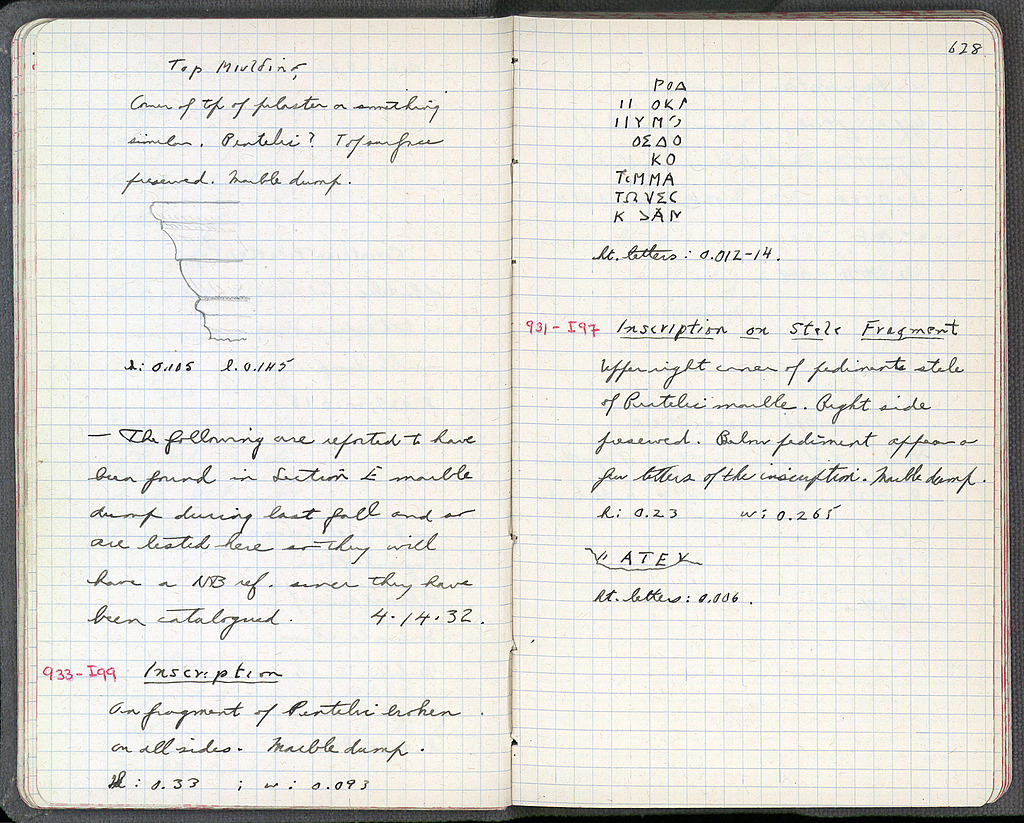 Top Moulding
Corner of top of pilaster or something
similar. Pentelic? Top surface
preserved. Marble dump.
h: 0.105 l. 0.145
— The following are reported to have
been found in Section E marble
dump during last fall and so
are listed here so they will
have a NB ref. since they have
been catalogued. 4.14.32.
933-I99 Inscription
On fragment of Pentelic broken
on all sides. Marble dump.
H: 0.33 ; w: 0.093
628
ΡΟΔ
ΙΙ ΟΚΛ
ΙΙΥΜΟ
ΟΣΔΟ
ΚΟ
ΤΕΜΜΑ
ΤΩΝΕΣ
Κ ΑΝ
ht. letters: 0.012-14.
931-I97 Inscription on Stele Fragment
Upper right corner of pediment stele
of Pentelic marble. Right side
preserved. Below pediment appear a
few letters of the inscription. Marble dump.
h: 0.23 w: 0.265
ΑΤΕΥ
ht. letters: 0.006.